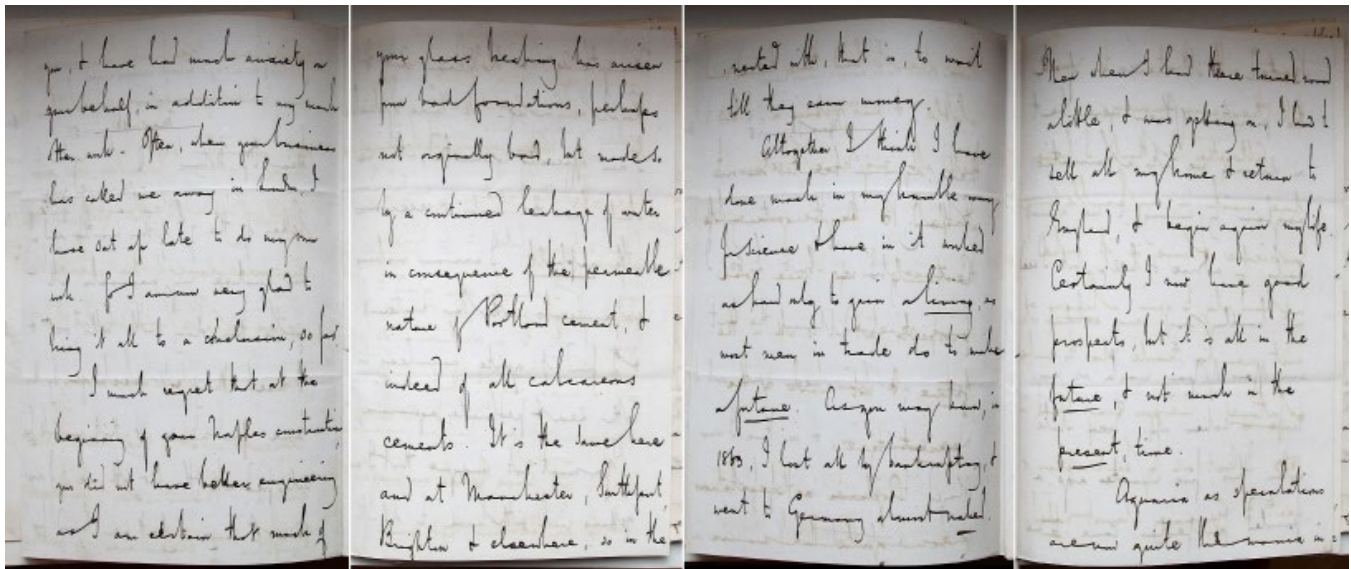 you, & have had much anxiety on
your behalf, in addition to my much
other work. Often, when your business
has called me away in London I
have sat up late to do my own
work. & I am now very glad to
bring it all to a conclusion, so far.
I much regret that at the
beginning of your Naples construction
you did not have better engineering
as I am certain that much of
your glass breaking has arisen
from bad foundations, perhaps
not originally bad, but made so
by a continued leakage of water
in consequence of the permeable
nature of Portland cement, &
indeed of all calcareous
cements. It is the same here
and at Manchester, Southport,
Brighton & elsewhere, so in the
with, that is, to wait
till they earn money.
Altogether I think I have
done much in my humble way
for science & have in it worked
as hard only to gain a living, as
most men in trade do to make
a fortune. As you may know, in
1863, I lost all by bankruptcy, &
went to Germany almost naked.
Then when I had there turned round
a little, & was getting on, I had to
sell all my home & return to
England, & begin again my life.
Certainly I now have good
prospects, but it is all in the
future, & not much in the
present, time.
Aquaria as speculations
are now quite the mania in